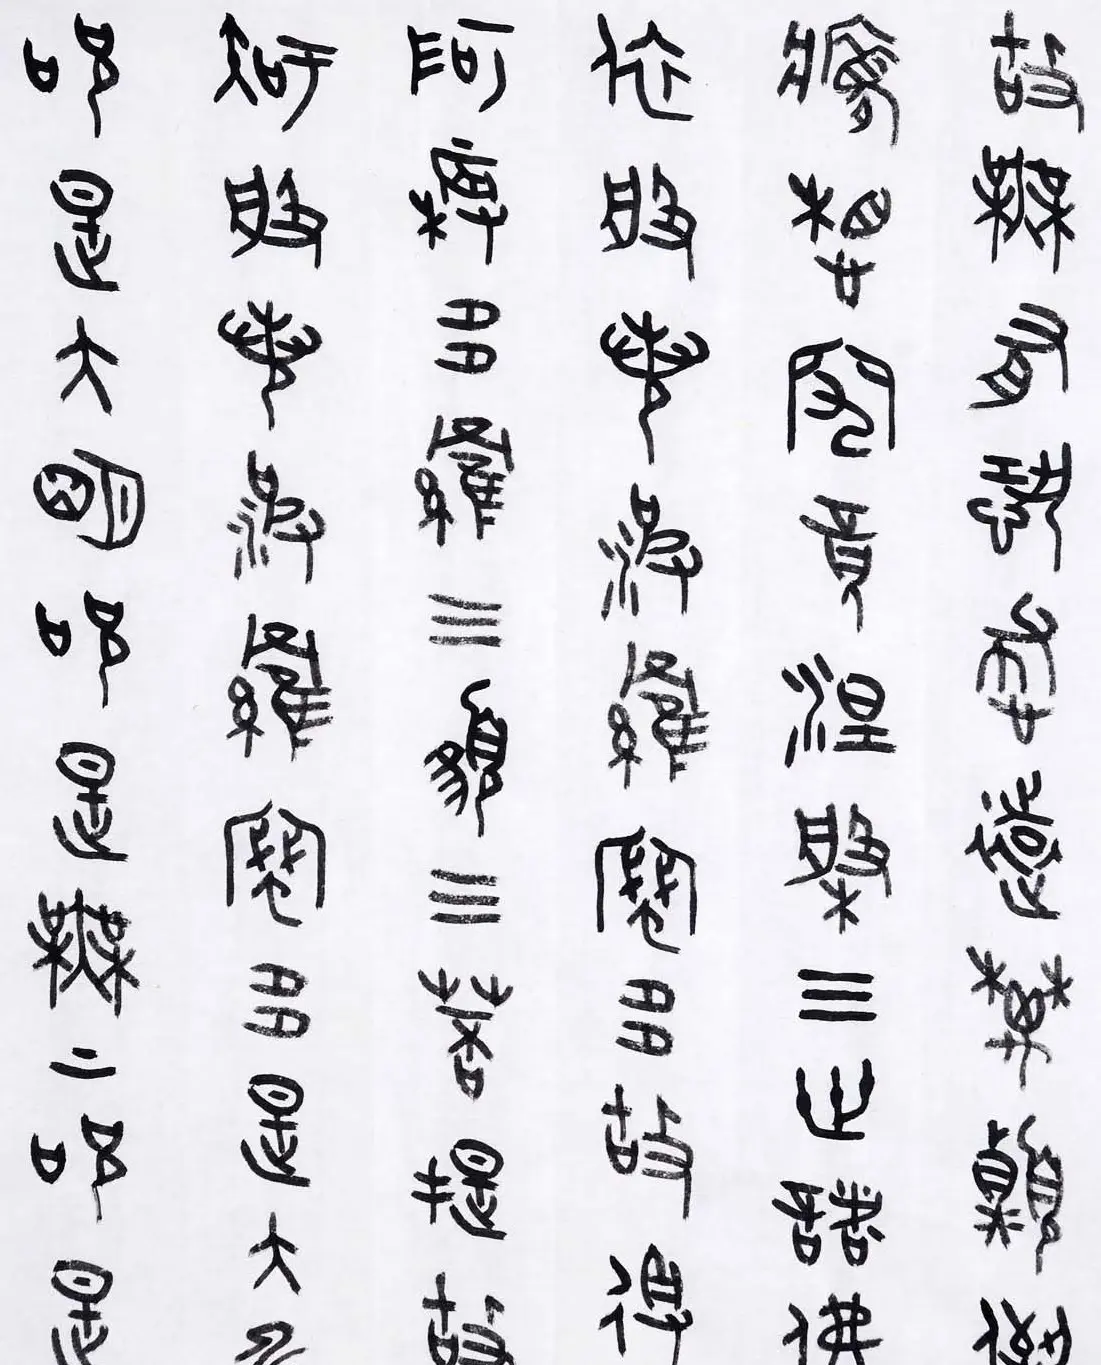 故無有恐怖遠離顛倒
夢想究竟涅槃三世諸佛
依般若波羅蜜多故得
阿耨多羅三藐三菩提故
知般若波羅蜜多是大神
呪是大明呪是無上呪是